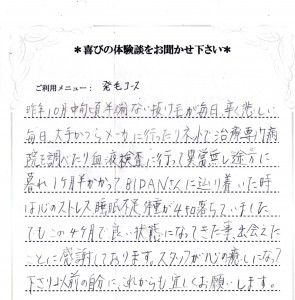 ＊喜びの体験談をお聞かせ下さい＊
ご利用メニュー： 発毛コース
昨年10月中旬頃半端ない抜け毛が毎日、辛く悲しい
毎日、大手かつらメーカに行ったりネットで治療専門病
院を調べたり血液検査に行って異常無し途方に
暮れ1ヶ月半かかってBIDANさんに辿り着いた時
は心のストレス睡眠不足体重が4キロ落ちていました
でもこの4ケ月で良い状態になってきた事、出会えた
ことに感謝しております。スタッフが心の癒しになって
下さり以前の自分に これからも宜しくお願いします。